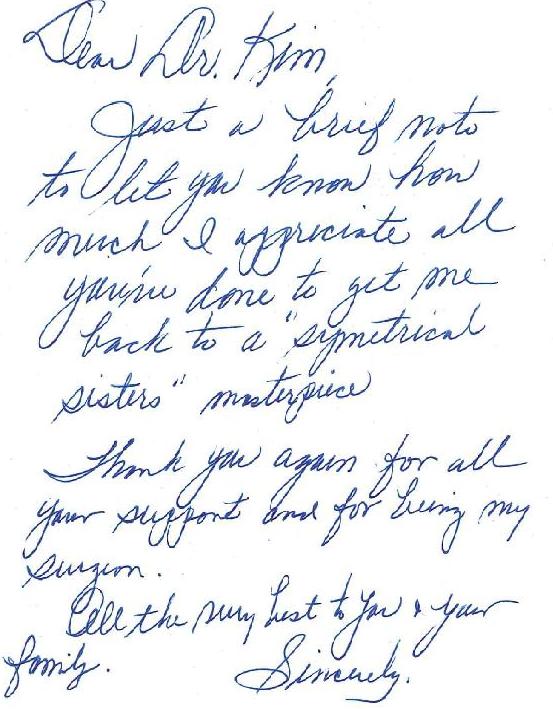 Dear Dr. Kim,
Just a brief note
to let you know how
much I appreciate all
you've done to get me
back to a "symetrical
sisters" masterpiece
Thank you again for all
your support and for being my
surgeon.
All the very best to you & your
family.
Sincerely.